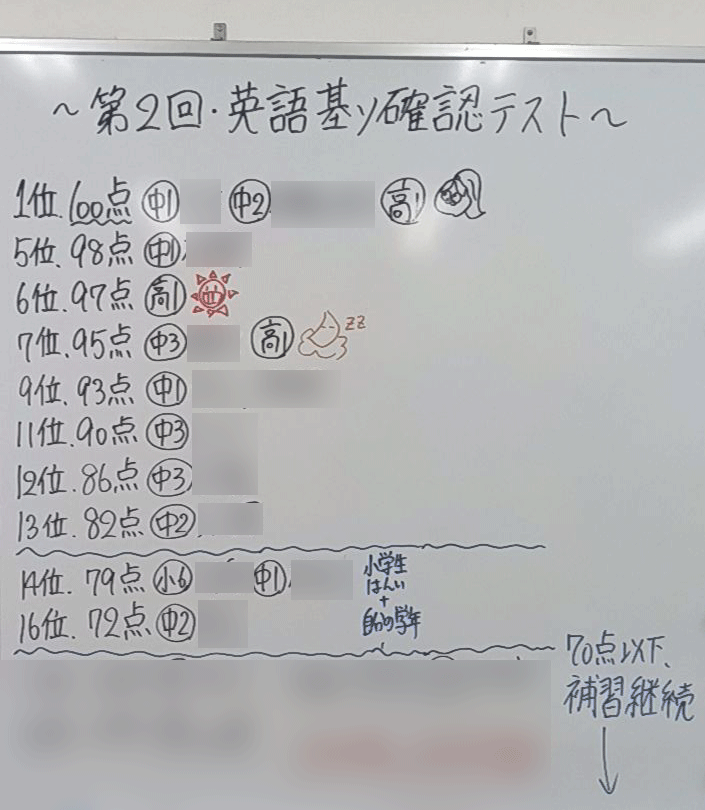 ～第2回・英語基ソ確認テスト～
1位.100点 中1 中2 高1
5位、98点 中1
6位、97点 高1
7位、95点 中3 高1 zz
9位、93点 中1
11位.90点 中3
12位.86点 中3
13位.82点 中2
14位.79点 小6 中1
16位.72点 中2
小学生
はんい
+
自分の学年
70点以下、
補習継続